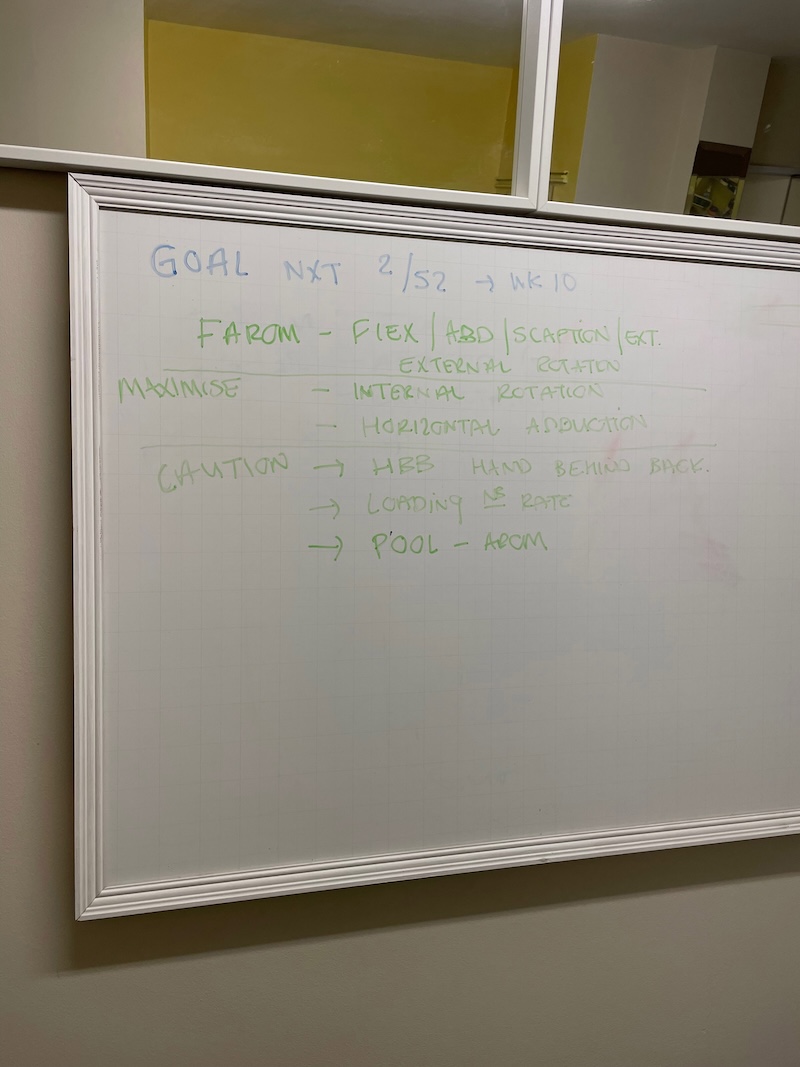 GOAL NXT 2/52 → WK 10
FAROM - FLEX / ABD / SCAPTION / EXT.
EXTERNAL ROTATION
MAXIMISE - INTERNAL ROTATION
- HORIZONTAL ADDUCTION
CAUTION → HBB HAND BEHIND BACK.
→ LOADING RATE
→ POOL - AROM